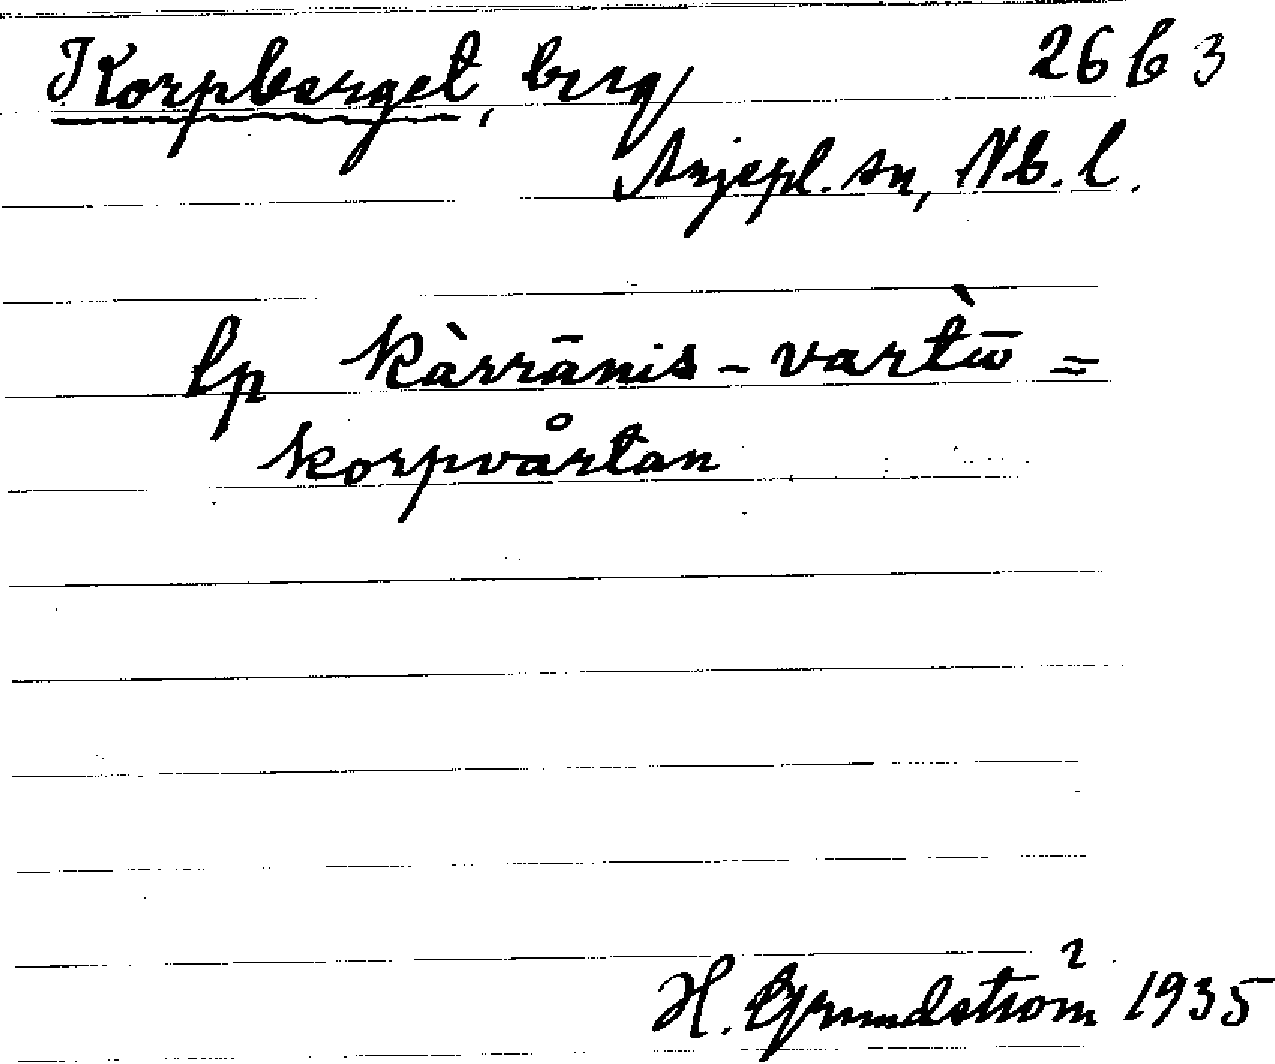 Korpberget, berg 26 b 3
Arjepl. sn, Nb. l.
lp kàrrānis-vartω̄̀ =
korpvårtan
H. Grundström 1935